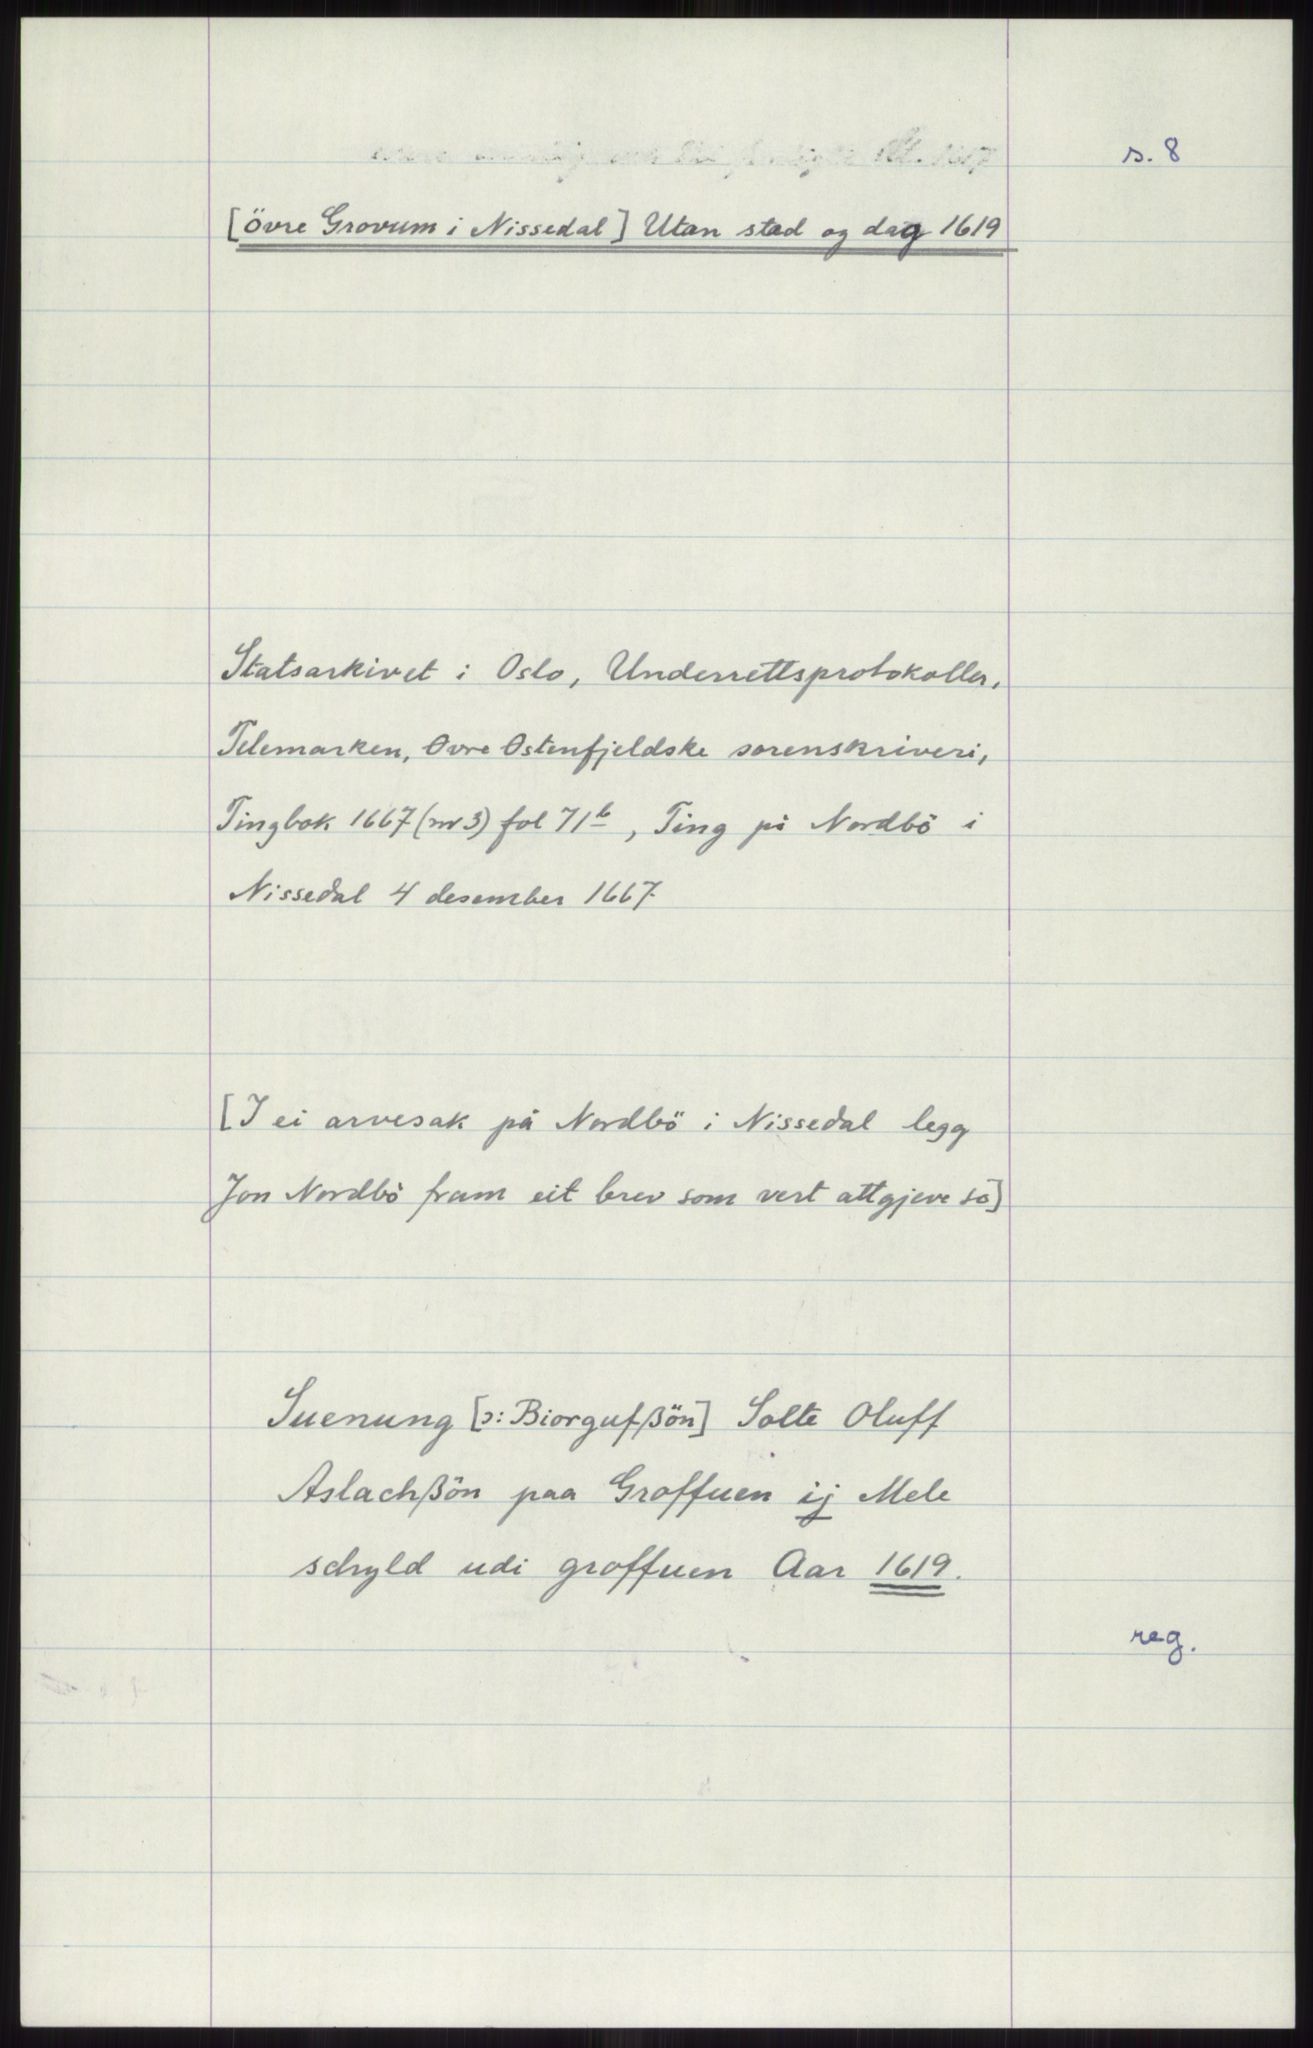 s. 8
[Övre Grovum i Nissedal] Utan stad og dag 1619
Statsarkivet i Oslo, Underrettsprotokoller,
Telemarken, Øvre Østenfjeldske sorenskriveri,
Tingbok 1667 (nr 3) fol 71b, Ting på Nordbö i
Nissedal 4 desember 1667
[I ei arvesak på Nordbö i Nissedal legg
Jon Nordbö fram eit brev som vert attgjeve så]
Suenung [ɔ: Biorgufßön] Solte Oluff
Aslachßön paa Groffuen ij Mele
schyld udi groffuen Aar 1619.
reg.